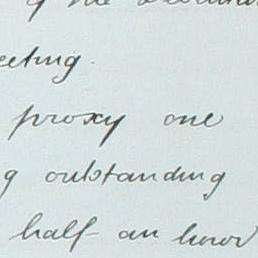 of the
eeting.
proxy one
g outstanding
half an hour